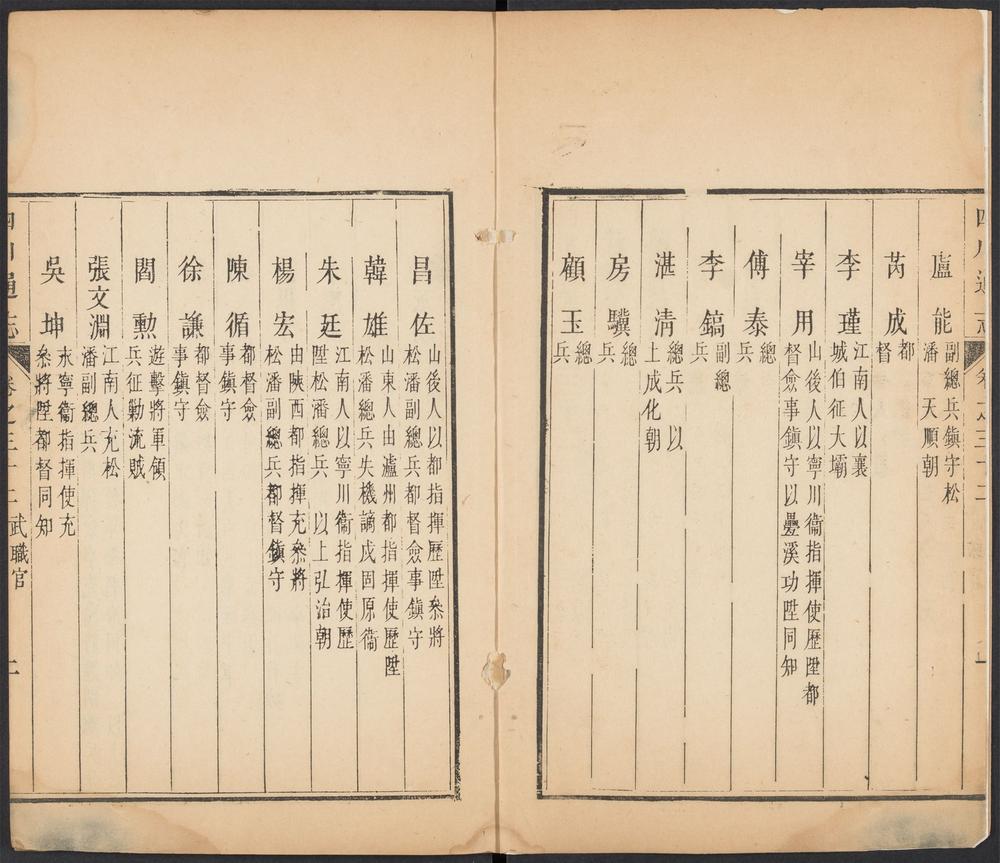 四川通志 卷之三十二
盧能 副總兵鎮守松潘 天順朝
芮成 都督
李瑾 江南人以襄城伯征大壩
宰用 山後人以寧川衞指揮使歷陞都督僉事鎮守以疊溪功陞同知
傅泰 總兵
李鎬 副總兵
湛清 總兵 以上成化朝
房驥 總兵
顧玉 總兵
昌佐 山後人以都指揮歷陞叅將松潘副總兵都督僉事鎮守
韓雄 山東人由瀘州都指揮使歷陞松潘總兵失機謫戍固原衞
朱廷 江南人以寧川衞指揮使歷陞松潘總兵 以上弘治朝
楊宏 由陝西都指揮充叅將松潘副總兵都督鎮守
陳循 都督僉事鎮守
徐謙 都督僉事鎮守
閻勲 遊擊將軍領兵征勦流賊
張文淵 江南人充松潘副總兵
吳坤 永寧衞指揮使充叅將陞都督同知
四川通志 卷之三十二 武職官 二